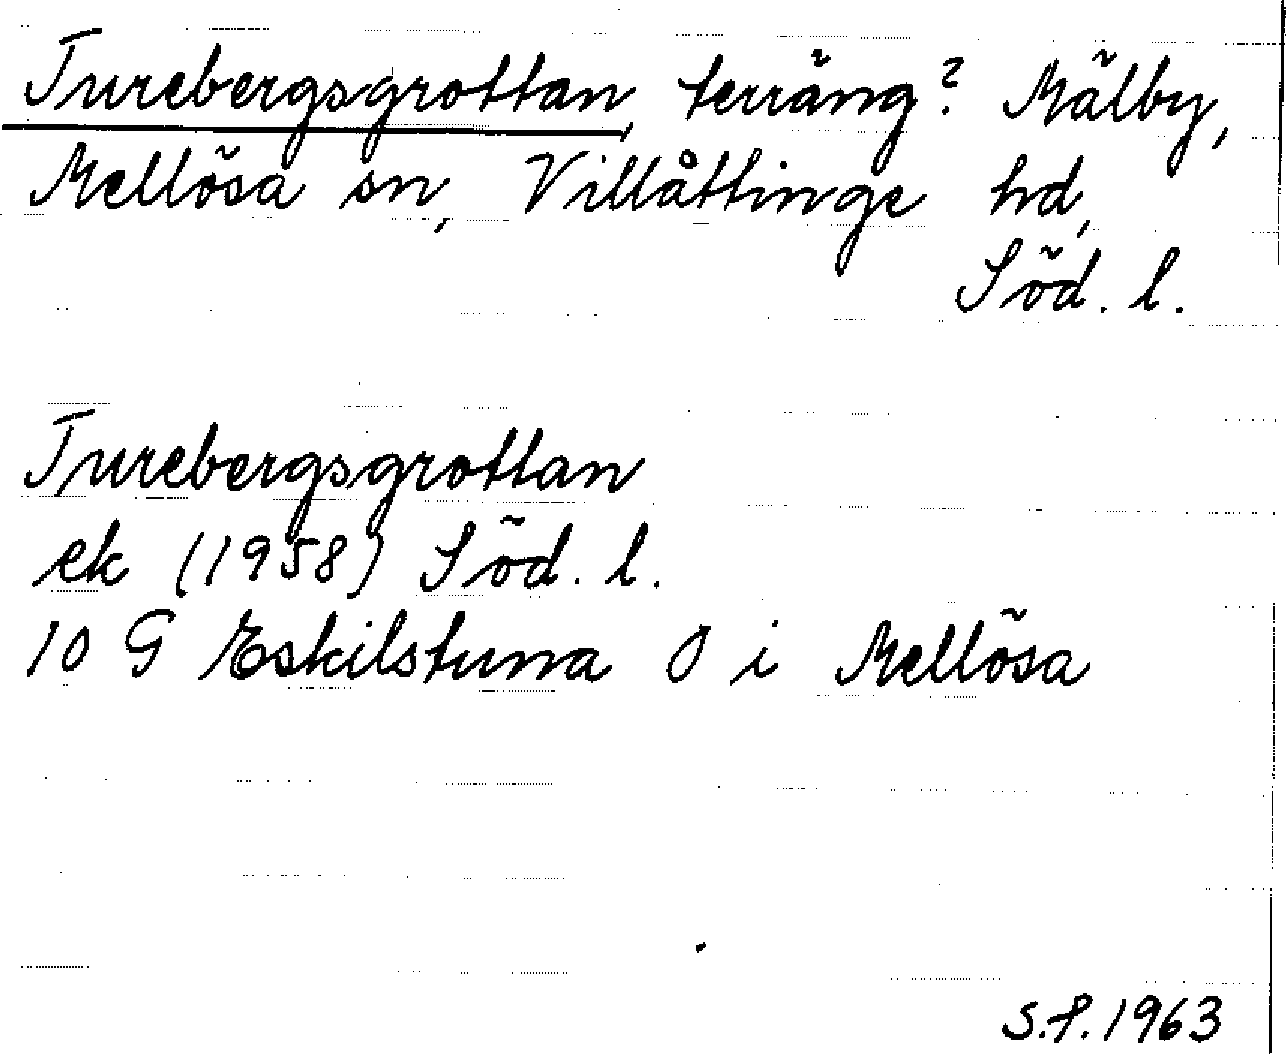 Turebergsgrottan, terräng? Mälby,
Mellösa sn, Villåttinge hd,
Söd. l.
Turebergsgrottan
ek (1958) Söd. l.
10 G Eskilstuna O i Mellösa
S.P. 1963